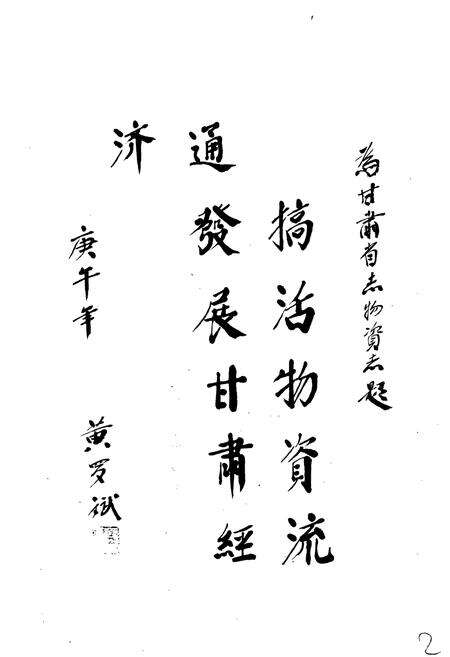 為甘肅省志物資志題
搞活物資流
通發展甘肅經
济
庚午年
黄罗斌
2